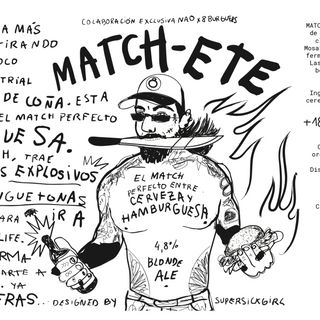 COLABORACIÓN EXCLUSIVA NAO X 8 BURGUERS
MATCH-ETE
A MÁS
TIRANDO
OCO
TRIAL
DE COÑA. ESTA
EL MATCH PERFECTO
UESA.
H, TRAE
S EXPLOSIVOS
NGUETONAS
PARA MIRA
LIFE.
RMA
ARTE A
YA
FRAS...
EL MATCH
PERFECTO ENTRE
CERVEZA Y
HAMBURGUESA
4,8%
BLONDE
ALE
DESIGNED BY SUPERSICKGIRL
MATC
de
c
Mosa
ferm
Las
be
Ing
cere
+18
C
or
Dis
C